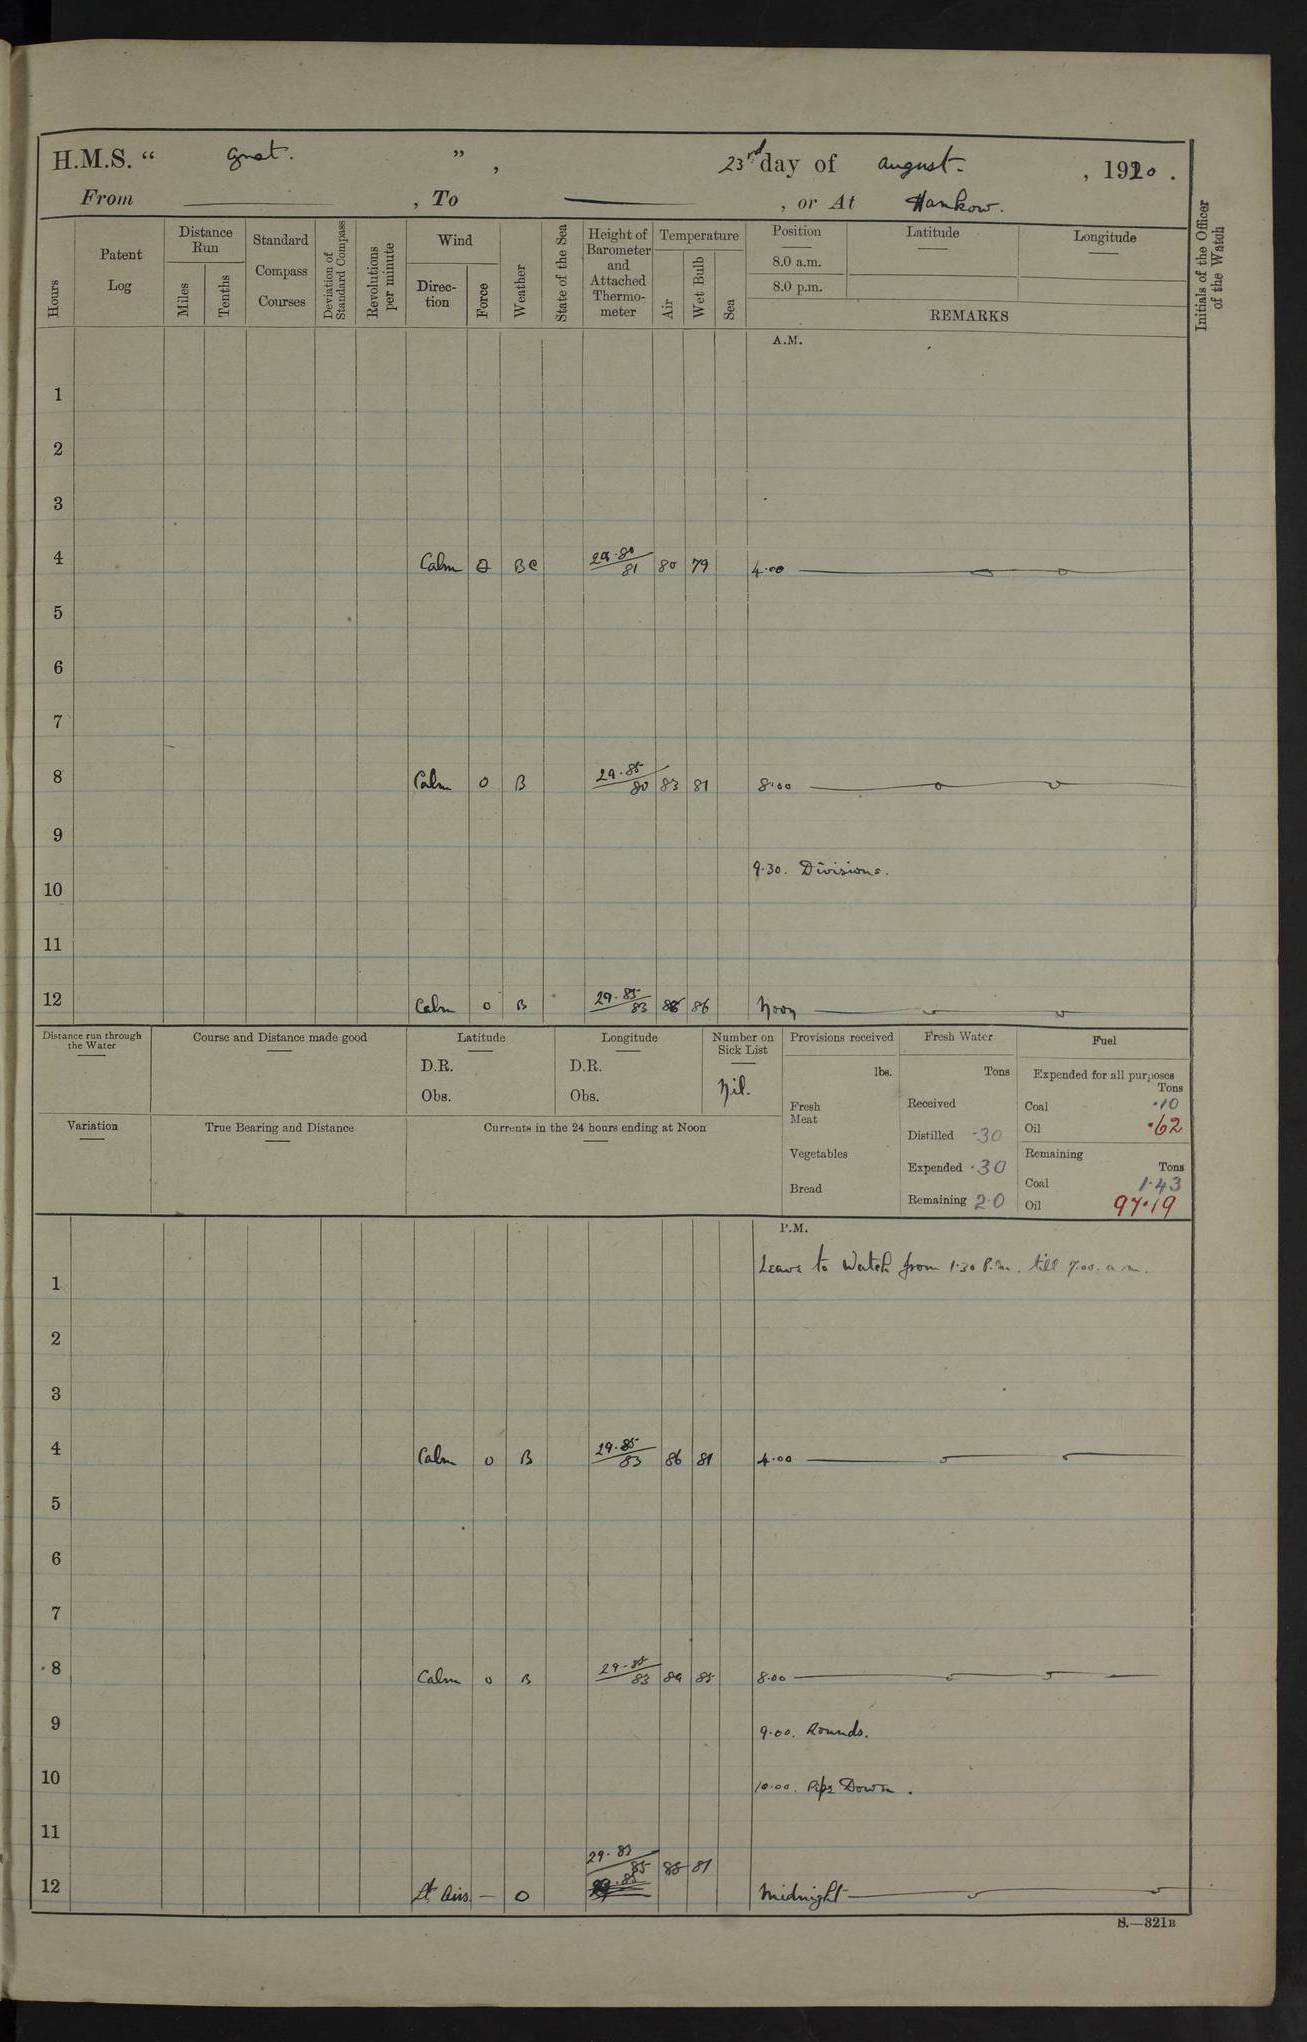 H.M.S. “ Gnat. ” , 23rd day of August. , 1920 .
From , To , or At Hankow.
Hours
Patent Log
Distance Run
Miles
Tenths
Standard Compass Courses
Deviation of Standard Compass
Revolutions per minute
Wind
Direc-tion
Force
Weather
State of the Sea
Height of Barometer and Attached Thermo-meter
Temperature
Air
Wet Bulb
Sea
Position
8.0 a.m.
8.0 p.m.
Latitude
Longitude
REMARKS
Initials of the Officer of the Watch
A.M.
1
2
3
4 Calm 0 BC 29.80 81 80 79 4.00
5
6
7
8 Calm 0 B 29.85 80 83 81 8.00
9
9.30. Divisions.
10
11
12 Calm 0 B 29.85 83 86 Noon
Distance run through the Water
Course and Distance made good
Latitude
D.R.
Obs.
Longitude
D.R.
Obs.
Number on Sick List
Nil.
Provisions received
lbs.
Fresh Meat
Vegetables
Bread
Fresh Water
Tons
Received
Distilled .30
Expended .30
Remaining 2.0
Fuel
Expended for all purposes
Tons
Coal .10
Oil .62
Remaining
Tons
Coal 1.43
Oil 97.19
Variation
True Bearing and Distance
Currents in the 24 hours ending at Noon
P.M.
Leave to Watch from 1.30 P.m. till 7.00. a.m.
1
2
3
4 Calm 0 B 29.85 83 86 81 4.00
5
6
7
8 Calm 0 B 29.85 83 85 8.00
9 9.00. Rounds.
10 10.00. Pipe Down.
11
12 Lt Airs. — O 29.83 85 85 81 Midnight
S.—321B